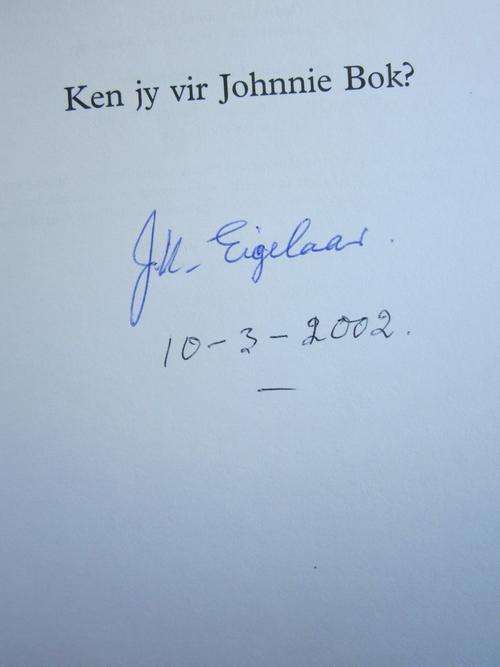 Ken jy vir Johnnie Bok?
J.K. Eigelaar.
10-3-2002.